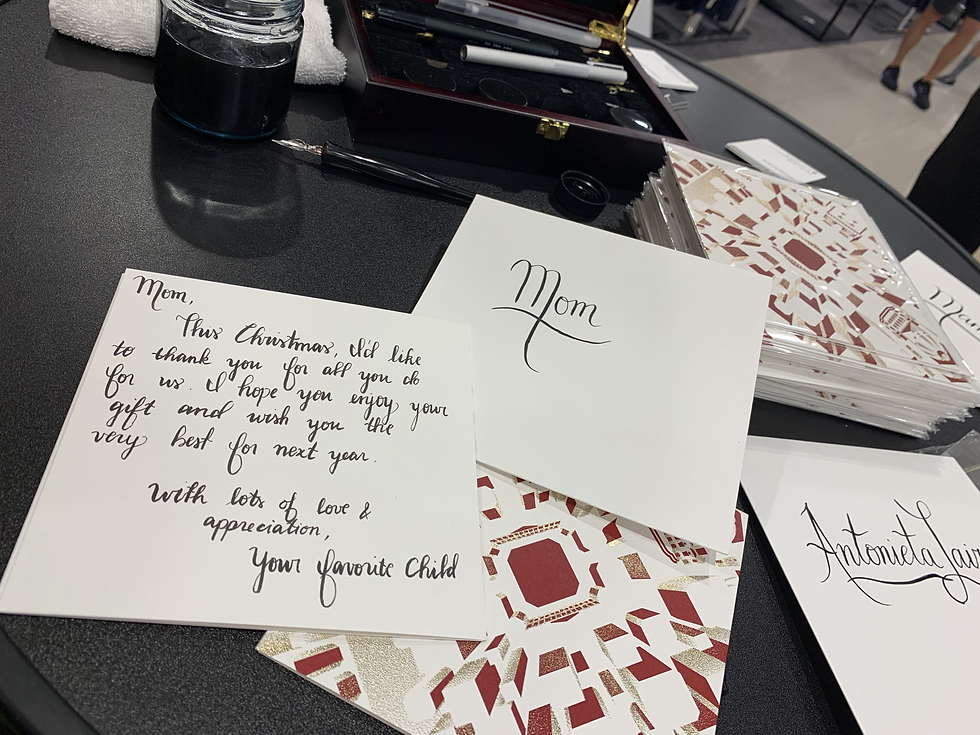 Mom,
This Christmas, I'd like
to thank you for all you do
for us. I hope you enjoy your
gift and wish you the
very best for next year.
With lots of love &
appreciation,
Your favorite Child
Mom
Antonieta